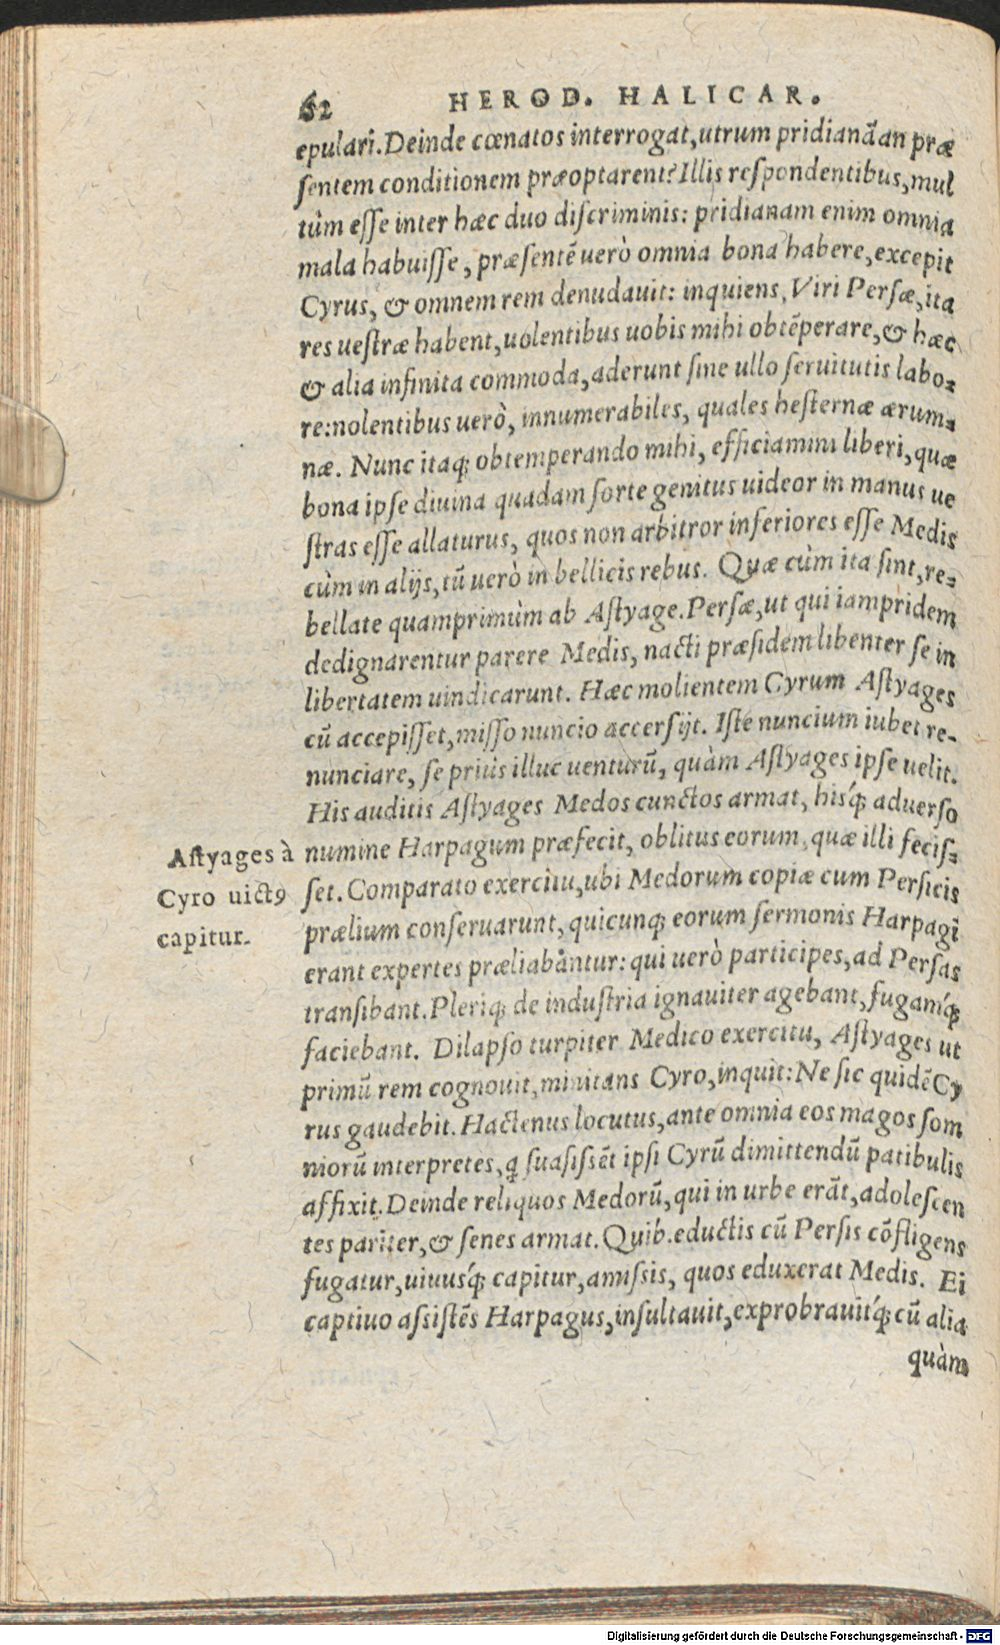 62 HEROD. HALICAR.
epulari. Deinde cœnatos interrogat, utrum pridianã an præ
ſentem conditionem præoptarent? Illis reſpondentibus, mul
tùm eſſe inter hæc duo diſcriminis: pridianam enim omnia
mala habuiſſe, præſentẽ uerò omnia bona habere, excepit
Cyrus, & omnem rem denudauit: inquiens, Viri Perſæ, ita
res ueſtræ habent, uolentibus uobis mihi obtẽperare, & hæc
& alia infinita commoda, aderunt ſine ullo ſeruitutis labo-
re: nolentibus uerò, innumerabiles, quales heſternæ ærum-
næ. Nunc itaq; obtemperando mihi, efficiamini liberi, quæ
bona ipſe diuina quadam ſorte genitus uideor in manus ue
ſtras eſſe allaturus, quos non arbitror inferiores eſſe Medis
cùm in alijs, tũ uerò in bellicis rebus. Quæ cùm ita ſint, re-
bellate quamprimùm ab Aſtyage. Perſæ, ut qui iampridem
dedignarentur parere Medis, nacti præſidem libenter ſe in
libertatem uindicarunt. Hæc molientem Cyrum Aſtyages
cũ accepiſſet, miſſo nuncio accerſijt. Iſte nuncium iubet re-
nunciare, ſe priùs illuc uenturũ, quàm Aſtyages ipſe uelit.
His auditis Aſtyages Medos cunctos armat, hisq́; aduerſo
numine Harpagum præfecit, oblitus eorum, quæ illi feciſ-
ſet. Comparato exercitu, ubi Medorum copiæ cum Perſicis
prælium conſeruarunt, quicunq; eorum ſermonis Harpagi
erant expertes præliabantur: qui uerò participes, ad Perſas
tranſibant. Pleriq; de induſtria ignauiter agebant, fugamq́;
faciebant. Dilapſo turpiter Medico exercitu, Aſtyages ut
primũ rem cognouit, minitans Cyro, inquit: Ne ſic quidẽ Cy
rus gaudebit. Hactenus locutus, ante omnia eos magos ſom
niorũ interpretes, q̃ ſuaſiſſẽt ipſi Cyrũ dimittendũ patibulis
affixit. Deinde reliquos Medorũ, qui in urbe erãt, adoleſcen
tes pariter, & ſenes armat. Quib. eductis cũ Perſis cõfligens
fugatur, uiuusq́; capitur, amiſsis, quos eduxerat Medis. Ei
captiuo aſsiſtẽs Harpagus, inſultauit, exprobrauitq́; cũ alia
quàm
Aſtyages à
Cyro uictꝰ
capitur.
Digitalisierung gefördert durch die Deutsche Forschungsgemeinschaft - DFG